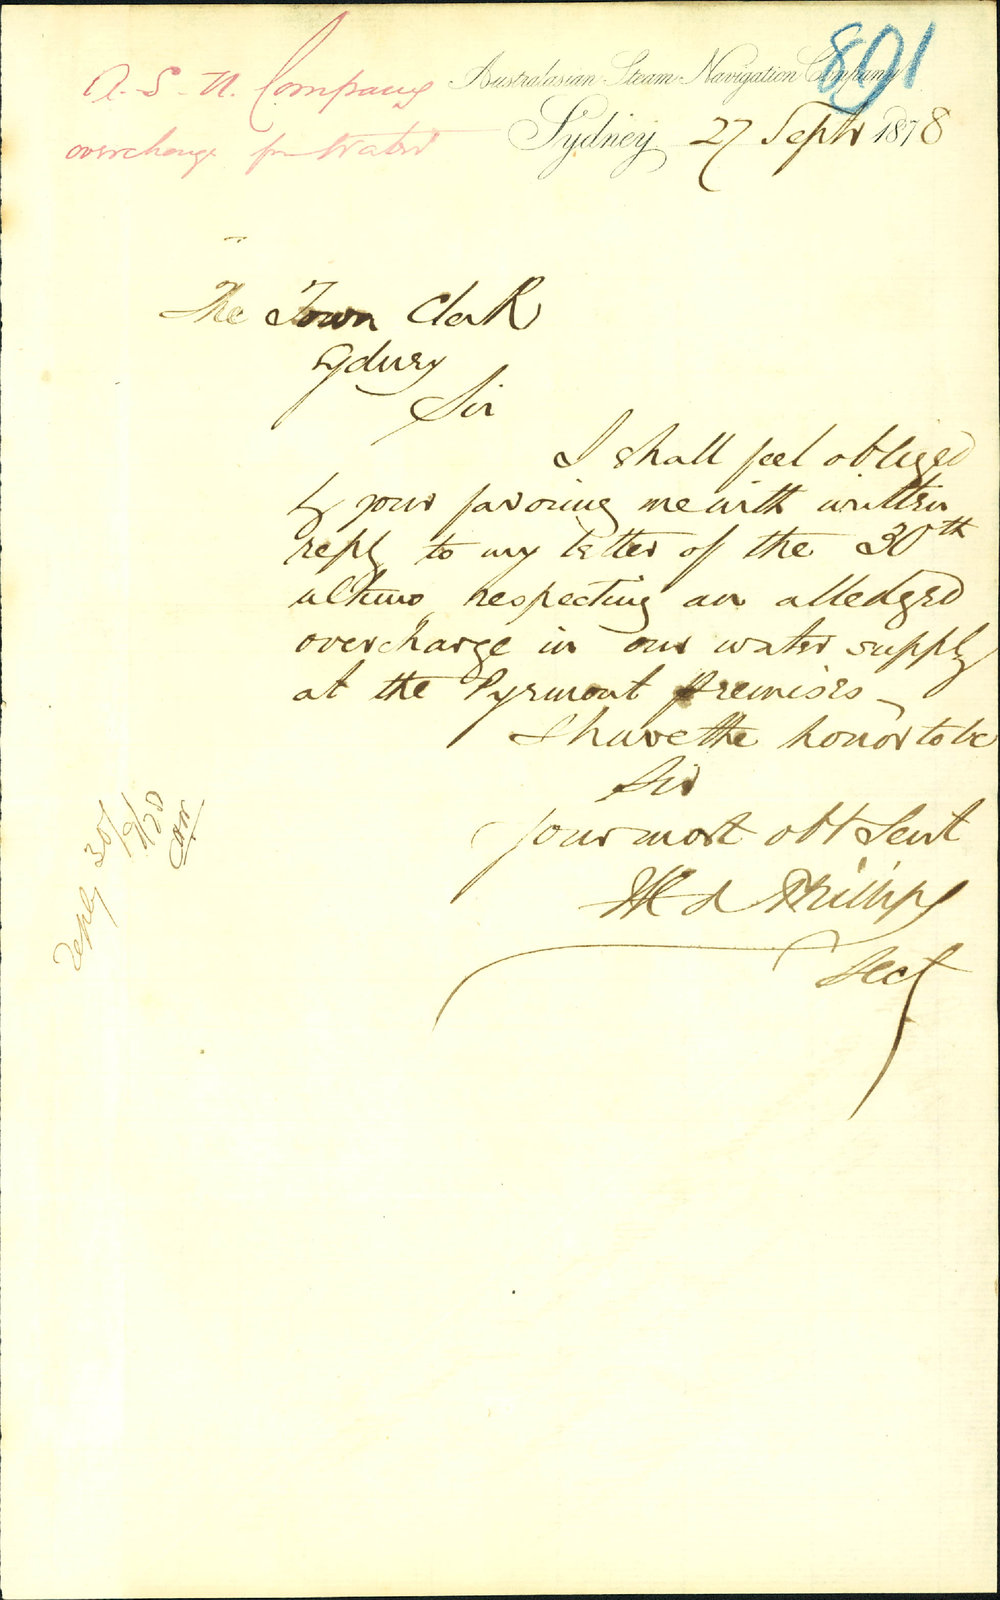 891
A. S. N. Company
overcharge for Water
Australasian Steam Navigation Company
Sydney 27 Septr 1878
The Town Clerk
Sydney
Sir
I shall feel obliged
by your favoring me with written
reply to my letter of the 30th
ultimo respecting an alledged
overcharge in our water supply
at the Pyrmont premises
I have the honor to be
Sir
your most obt Servt
Phillips
Secy
reply 30/